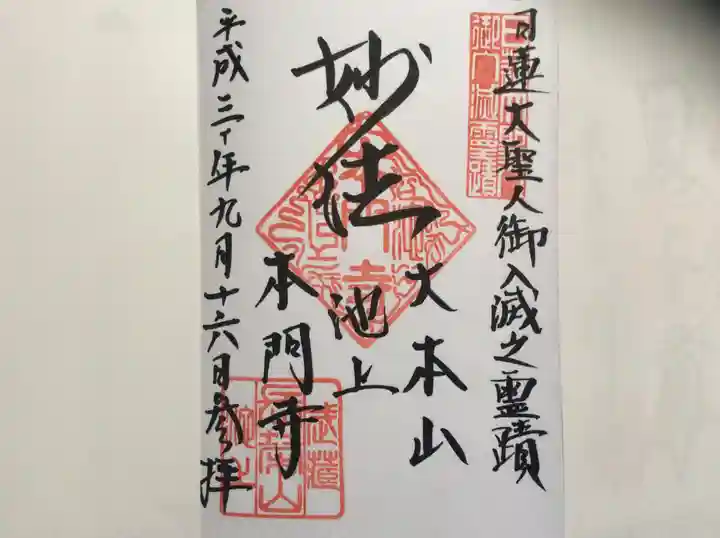 日蓮大聖人御入滅之霊蹟
妙法
大本山
池上
本門寺
平成三十年九月十六日参拝